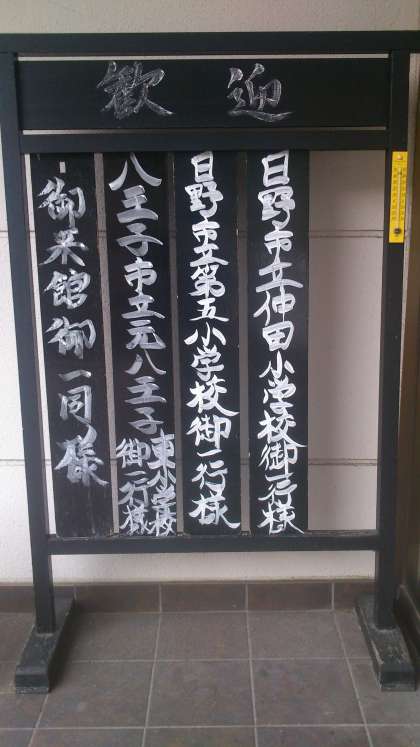 歓迎
日野市立仲田小学校御一行様
日野市立第五小学校御一行様
八王子市立元八王子東小学校御一行様
御来館御一同様